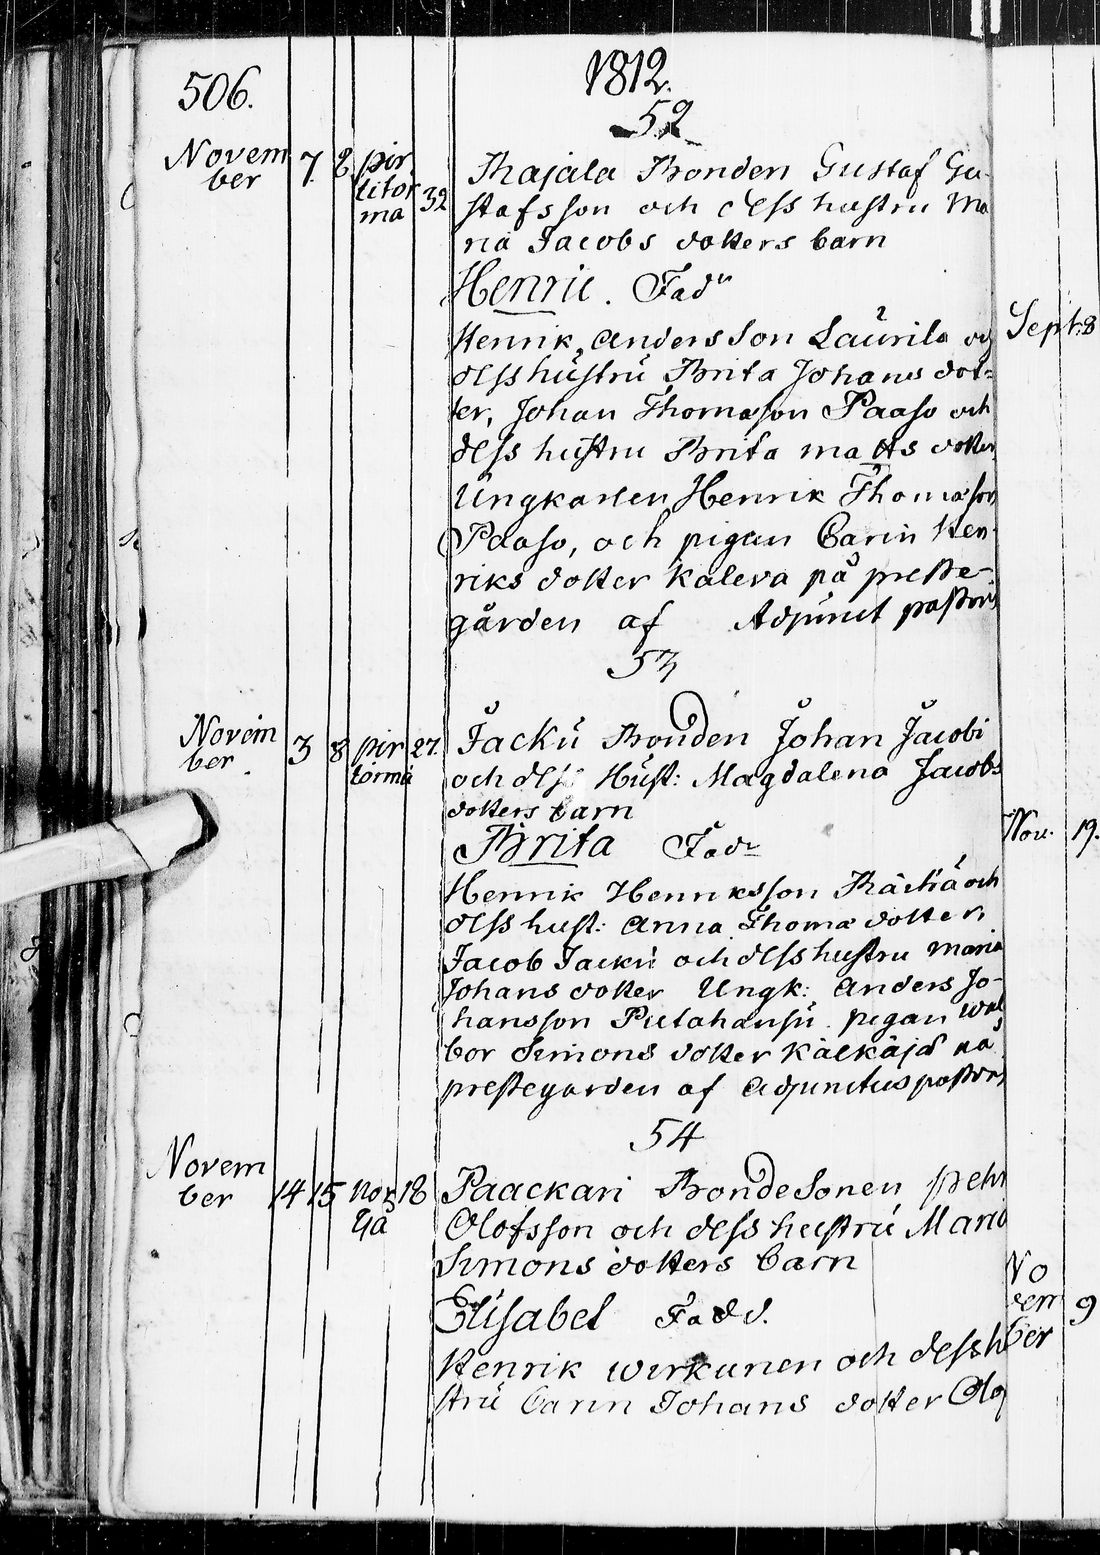 506.
1812.
52
Novem 7. 8. pir
ber titör 32
ma
Thajala Bonden Gustaf Gu-
stafsson och dess hustru Ma
ria Jacobs dotters barn
Henric. Fadr
Henrik Andersson Laurila och
dess hustru Brita Johans dot-
ter, Johan Thomasson Paaso och
dess hustru Brita matts dotter
Ungkarlen Henrik Thomasson
Paaso, och pigan Carin Hen-
riks dotter Kaleva på preste-
gården af Adjunct pastoris
Sept: 8
53
Novem 3 8 pir 27.
ber törmä
Jacku Bonden Johan Jacobi
och dess Hust: Magdalena Jacobs
dotters barn
Brita Fadr
Henrik Henriksson och
dess hust: Anna Thomæ dotter,
Jacob Jacku och dess hustru maria
Johans dotter Ungk: Anders Jo-
hansson pigan Wal
bor Simons dotter Kälkäjä på
prestegården af Adjunctus pastoris
Nov. 19.
54
Novem 14 15 Nor 18
ber gå
Paackari Bondesonen pehr
Olofsson och dess hustru Maria
Simons dotters barn
Elisabet Fadd.
Henrik Wirkunen och dess h
stru Carin Johans dotter Olof
No
vem 9
ber